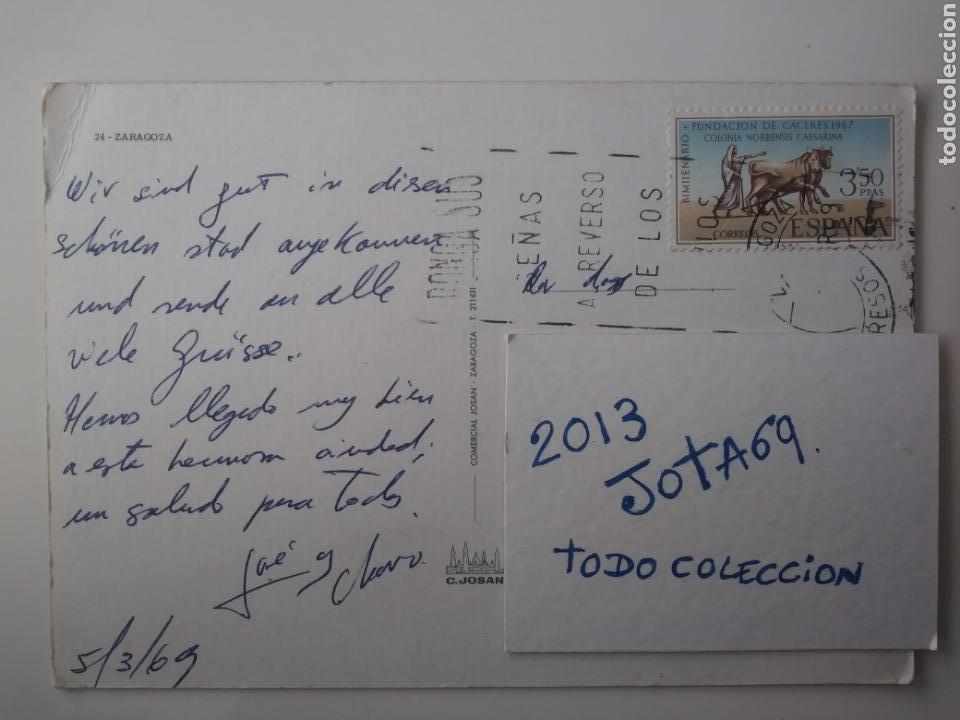 24 - ZARAGOZA
Wir sind gut in disen
schönen stad angekommen
und sende an alle
viele Grüsse..
Hemos llegado muy bien
a esta hermosa ciudad,
un saludo para Todos.
José y
5/3/69
COMERCIAL JOSAN - ZARAGOZA - T. 211431
C. JOSAN
PONGA SUS
SEÑAS
AL REVERSO
DE LOS
BIMILENARIO • FUNDACION DE CACERES 1967
COLONIA NORBENSIS CAESARINA
3'50
PTAS
CORREOS
ESPAÑA
2013
JOTA69.
TODO COLECCION
todocoleccion